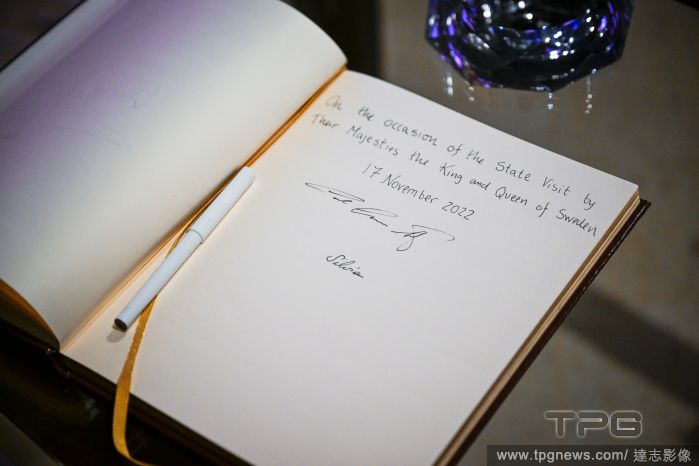 On the occasion of the State Visit by
Their Majesties the King and Queen of Sweden
17 November 2022
Carl Gustaf
Silvia
TPG
www.tpgnews.com/ 達志影像